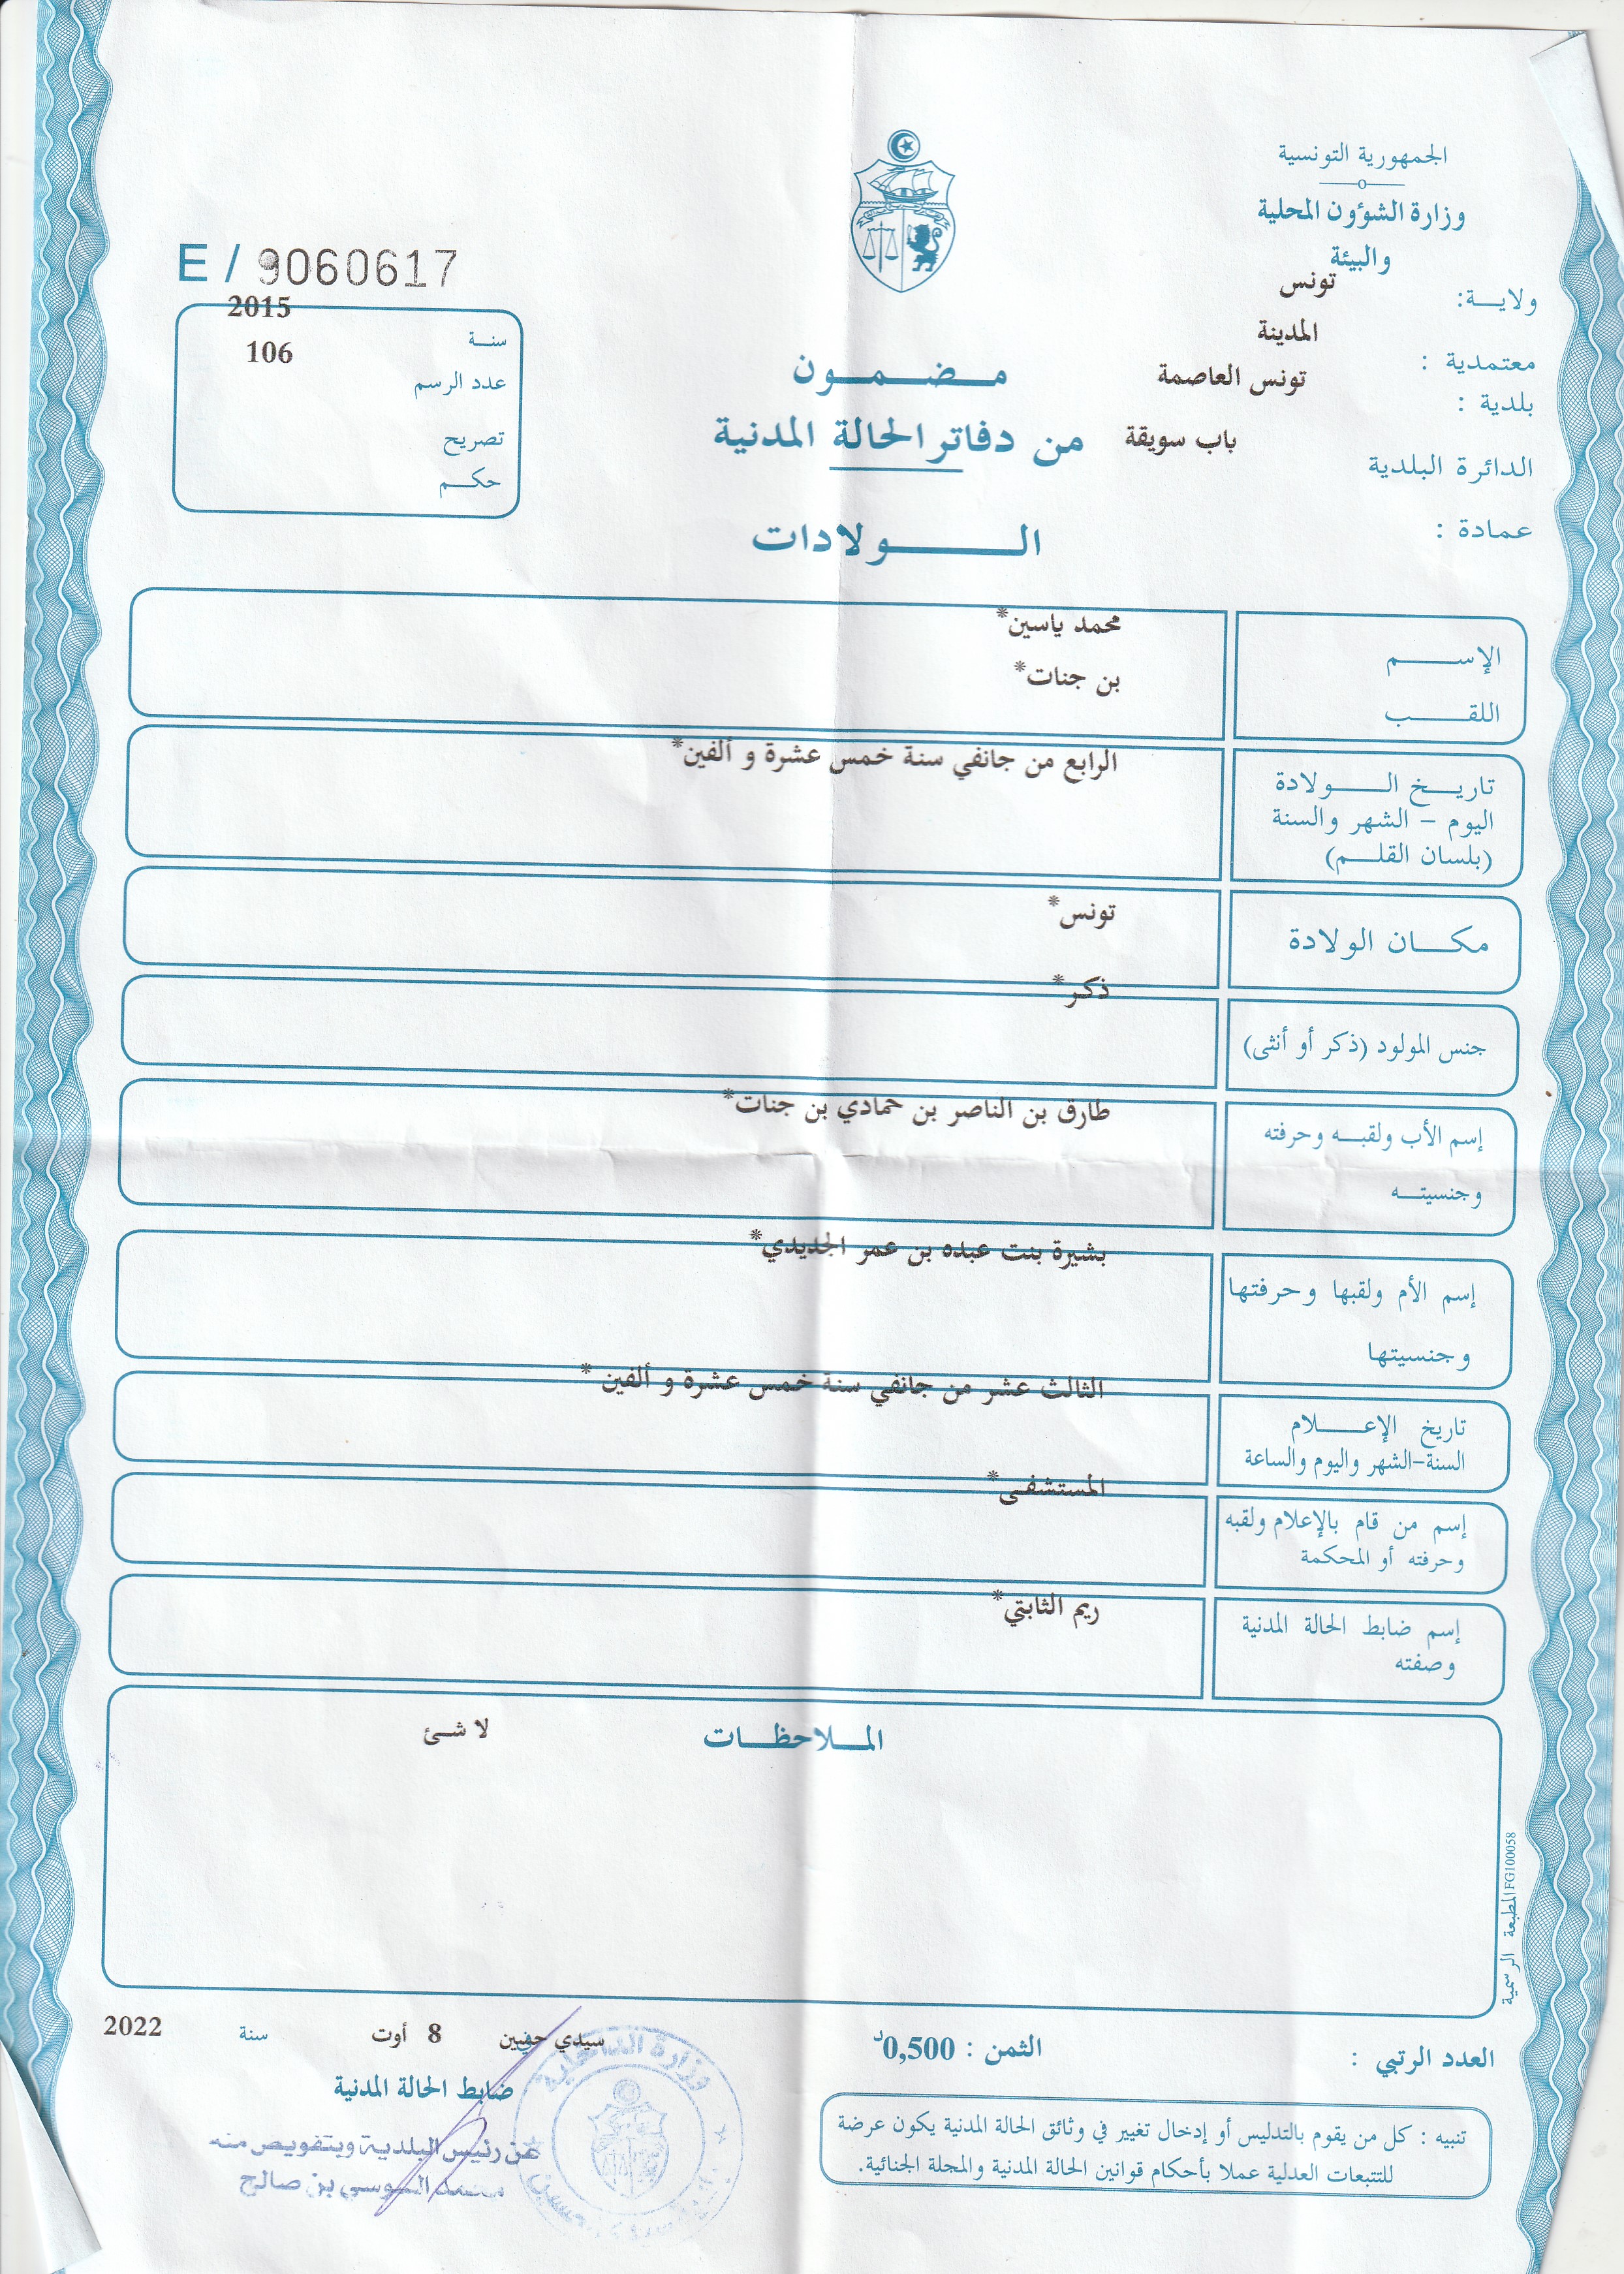 الجمهورية التونسية
وزارة الشؤون المحلية
والبيئة
ولاية: تونس
معتمدية : المدينة
بلدية : تونس العاصمة
الدائرة البلدية باب سويقة
عمادة :
E / 9060617
سنة 2015
عدد الرسم 106
تصريح
حكم
مضمون
من دفاتر الحالة المدنية
الولادات
الإسم محمد ياسين*
اللقب بن جنات*
تاريخ الولادة الرابع من جانفي سنة خمس عشرة و ألفين*
اليوم – الشهر والسنة
(بلسان القلم)
مكان الولادة تونس*
جنس المولود (ذكر أو أنثى) ذكر*
إسم الأب ولقبه وحرفته طارق بن الناصر بن حمادي بن جنات*
وجنسيته
إسم الأم ولقبها وحرفتها بشيرة بنت عبده بن عمر الجديدي*
وجنسيتها
تاريخ الإعلام الثالث عشر من جانفي سنة خمس عشرة و ألفين *
السنة-الشهر واليوم والساعة
إسم من قام بالإعلام ولقبه المستشفى*
وحرفته أو المحكمة
إسم ضابط الحالة المدنية ريم الثابتي*
وصفته
الملاحظات لا شئ
المطبعة الرسمية FG100058
العدد الرتبي :
الثمن : 0,500د
سيدي حسين في 8 أوت سنة 2022
ضابط الحالة المدنية
عن رئيس البلدية وبتفويض منه
محمد السوسي بن صالح
وزارة الداخلية
تنبيه : كل من يقوم بالتدليس أو إدخال تغيير في وثائق الحالة المدنية يكون عرضة
للتتبعات العدلية عملا بأحكام قوانين الحالة المدنية والمجلة الجنائية.